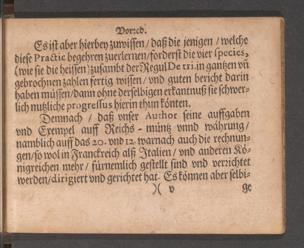 Vorred.
Es ist aber hierbey zuwissen / daß die jenigen / welche
diese Practic begehren zuerlernen / forderst die vier species,
(wie sie die heissen) zusambt der Regul De tri. in gantzen vñ
gebrochnen zahlen fertig wissen / vnd guten bericht darin
haben müssen / dann ohne derselbigen erkantnuß sie schwer-
lich nutzliche progressus hierin thun könten.
Demnach / daß vnser Author seine auffgaben
vnd Exempel auff Reichs - müntz vnnd währung /
namblich auff das 20. vnd 12. warnach auch die rechnun-
gen / so wol in Franckreich alß Italien / vnd anderen Kö-
nigreichen mehr / fürnemlich gestelt sind vnd verzichtet
werden / dirigiert vnd gerichtet hat. Es können aber selbi-
)( v ge